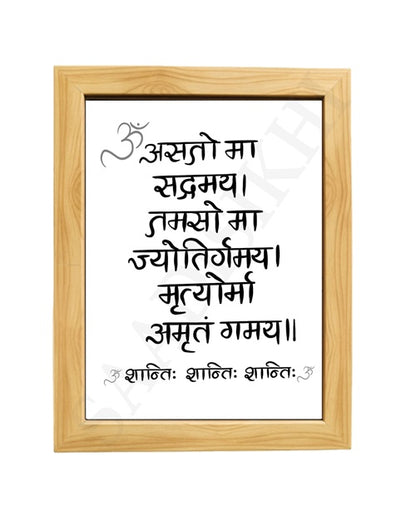 ॐ असतो मा
सद्गमय।
तमसो मा
ज्योतिर्गमय।
मृत्योर्मा
अमृतं गमय॥
ॐ शान्तिः शान्तिः शान्तिः ॐ